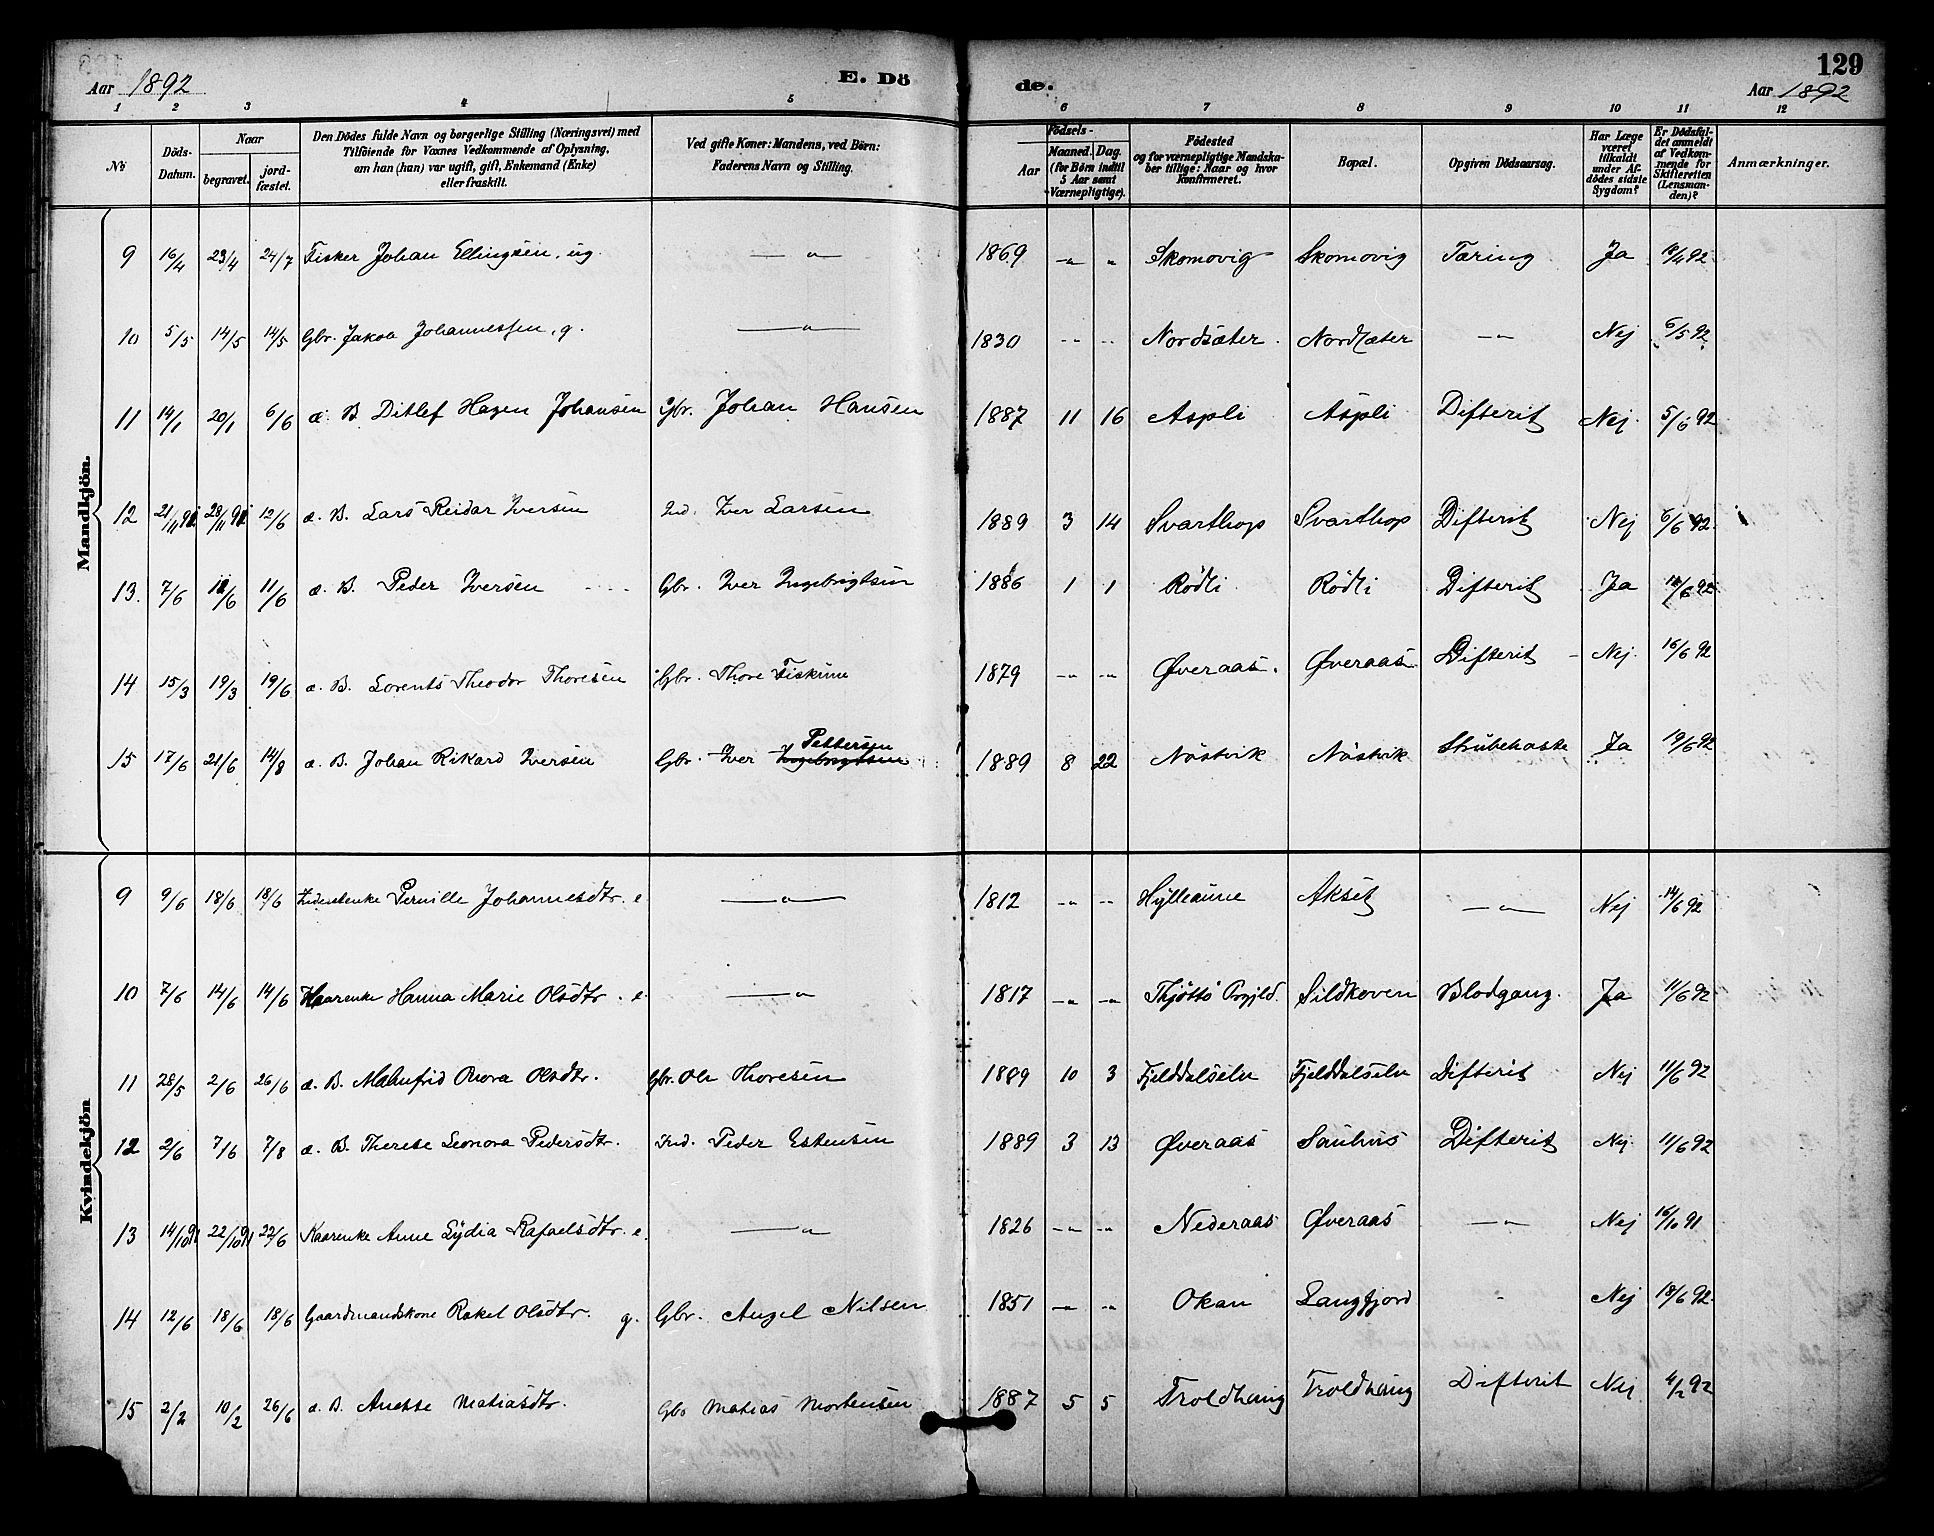 129
Aar 1892 E. Dö de. Aar 1892
1 2 3 4 5 6 7 8 9 10 11 12
№ Döds-Datum. Naar begravet. jord-fæstet. Den Dödes fulde Navn og borgerlige Stilling (Næringsvei) med Tilföiende for Voxnes Vedkommende af Oplysning, om han (hun) var ugift, gift, Enkemand (Enke) eller fraskilt. Ved gifte Koner: Mandens, ved Börn: Faderens Navn og Stilling. Födsels- Aar Maaned. Dag. (for Börn indtil 5 Aar samt Værnepligtige). Födested og for værnepligtige Mandskaber tillige: Naar og hvor konfirmeret. Bopæl. Opgiven Dödsaarsag. Har Læge været tilkaldt under Afdödes sidste Sygdom? Er Dödsfaldet anmeldt af Vedkommende for Skifteretten (Lensmanden)? Anmærkninger.
Mandkjön.
9 16/4 23/4 24/7 Fisker Johan Ellingsen, ug. — " — 1869 -"- " Skomovig Skomovig Tæring Ja 18/4 92
10 5/5 14/5 14/5 Gbr. Jakob Johannessen, g. — " — 1830 -"- -"- Nordsæter. Nordsæter -"- Nej 6/5 92
11 14/1 20/1 6/6 æ. B. Ditlef Hagen Johansen Gbr. Johan Hansen 1887 11 16 Aspli Aspli Difterit Nej. 5/6 92
12 21/11 91 28/11 91 12/6 æ. B. Lars Reidar Iversen Ind. Iver Larsen 1889 3 14 Svarthop Svarthop Difterit Nej 6/6 92.
13. 7/6 11/6 11/6 æ. B. Peder Iversen Gbr. Iver Ingebrigtsen 1886 1 1 Rödli Rödli Difterit Ja 11/6 92
14 15/3 19/3 19/6 æ. B. Lorents Theodor Thoresen Gbr. Thore Fiskum 1879 -"- -"- Øveraas. Øveraas Difterit - Nej. 16/6 92
15 17/6 21/6 14/8 æ. B. Johan Rikard Iversen Gbr. Iver Ingebrigtsen Pettersen 1889 8 22 Nästvik Nästvik Strubehoste Ja 19/6 92
Kvindekjön
9 9/6 18/6 18/6 Pernille Johannesdtr. e — " — 1812 -"- -"- Hylleaune Akset — " — Nej 14/6 92
10 7/6 14/6 14/6 Kaarenke Hanna Marie Olsdtr. e. — " — 1817 -"- -"- Thjöttö Prgjld. Sildkoven Blodgang. Ja 11/6 92
11 28/5 2/6 26/6 æ. B. Malmfrid Olsdtr. Gbr. Ole Thoresen 1889 10 3 Fjelddalselv Fjelddalselv Difterit Nej 11/6 92
12 2/6 7/6 7/8 æ. B. Therese Leonora Pedersdtr. Ind. Peder Estensen 1889 3 13 Øveraas Sauhus Difterit Nej. 11/6 92
13 14/10 91 22/10 91 22/6 Kaarenke Anne Lydia Rafaelsdtr. e. — " — 1826 -"- -"- Nederaas Øveraas — " — Nej 16/10 91
14 12/6 18/6 18/6 Gaardmandskone Rakel Olsdtr. g. Gbr. Angel Nilsen 1851 -"- -"- Okan Langfjord - Nej 18/6 92.
15 2/2 10/2 26/6 æ. B. Anette Matiasdtr. Gbr Matias Mortensen 1887 5 5 Troldhaug Troldhaug Difterit Nej 4/2 92